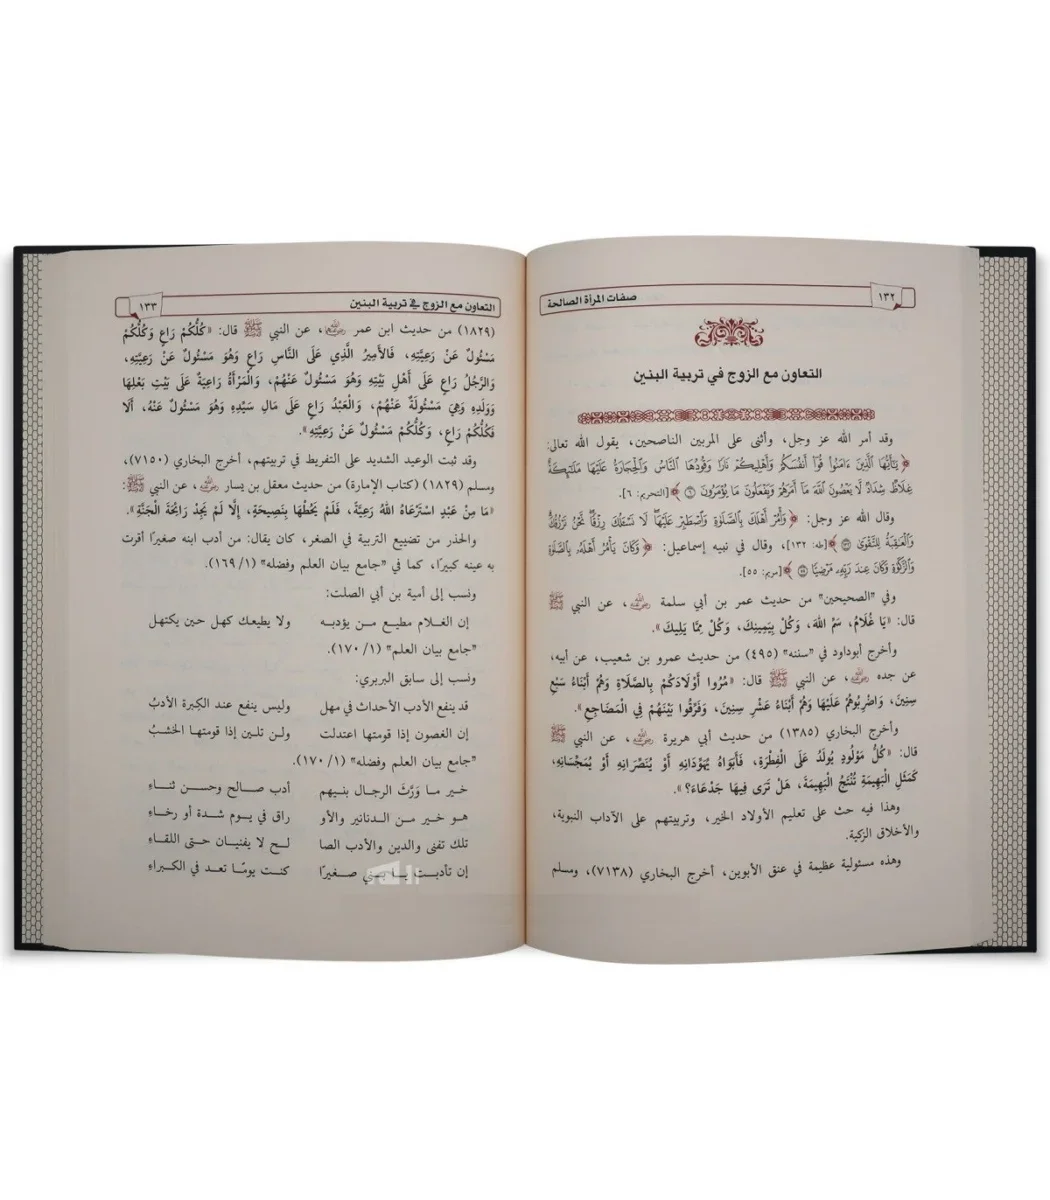 ١٣٢
صفات المرأة الصالحة
التعاون مع الزوج في تربية البنين
وقد أمر الله عز وجل، وأثنى على المربين الناصحين، يقول الله تعالى:
﴿يَٰٓأَيُّهَا ٱلَّذِينَ ءَامَنُوا۟ قُوٓا۟ أَنفُسَكُمْ وَأَهْلِيكُمْ نَارًا وَقُودُهَا ٱلنَّاسُ وَٱلْحِجَارَةُ عَلَيْهَا مَلَٰٓئِكَةٌ
غِلَاظٌ شِدَادٌ لَّا يَعْصُونَ ٱللَّهَ مَآ أَمَرَهُمْ وَيَفْعَلُونَ مَا يُؤْمَرُونَ ٦﴾ [التحريم: ٦].
وقال الله عز وجل: ﴿وَأْمُرْ أَهْلَكَ بِٱلصَّلَوٰةِ وَٱصْطَبِرْ عَلَيْهَا لَا نَسْـَٔلُكَ رِزْقًا نَّحْنُ نَرْزُقُكَ
وَٱلْعَٰقِبَةُ لِلتَّقْوَىٰ ١٣٢﴾ [طه: ١٣٢]، وقال في نبيه إسماعيل: ﴿وَكَانَ يَأْمُرُ أَهْلَهُۥ بِٱلصَّلَوٰةِ
وَٱلزَّكَوٰةِ وَكَانَ عِندَ رَبِّهِۦ مَرْضِيًّا ٥٥﴾ [مريم: ٥٥].
وفي "الصحيحين" من حديث عمر بن أبي سلمة رضي الله عنه، عن النبي ﷺ
قال: «يَا غُلَامُ، سَمِّ اللهَ، وَكُلْ بِيَمِينِكَ، وَكُلْ مِمَّا يَلِيكَ».
وأخرج أبوداود في "سننه" (٤٩٥) من حديث عمرو بن شعيب، عن أبيه،
عن جده رضي الله عنه، عن النبي ﷺ قال: «مُرُوا أَوْلَادَكُمْ بِالصَّلَاةِ وَهُمْ أَبْنَاءُ سَبْعِ
سِنِينَ، وَاضْرِبُوهُمْ عَلَيْهَا وَهُمْ أَبْنَاءُ عَشْرِ سِنِينَ، وَفَرِّقُوا بَيْنَهُمْ فِي الْمَضَاجِعِ».
وأخرج البخاري (١٣٨٥) من حديث أبي هريرة رضي الله عنه، عن النبي ﷺ
قال: «كُلُّ مَوْلُودٍ يُولَدُ عَلَى الْفِطْرَةِ، فَأَبَوَاهُ يُهَوِّدَانِهِ أَوْ يُنَصِّرَانِهِ أَوْ يُمَجِّسَانِهِ،
كَمَثَلِ الْبَهِيمَةِ تُنْتَجُ الْبَهِيمَةَ، هَلْ تَرَى فِيهَا جَدْعَاءَ؟».
وهذا فيه حث على تعليم الأولاد الخير، وتربيتهم على الآداب النبوية،
والأخلاق الزكية.
وهذه مسئولية عظيمة في عنق الأبوين، أخرج البخاري (٧١٣٨)، ومسلم
التعاون مع الزوج في تربية البنين
١٣٣
(١٨٢٩) من حديث ابن عمر رضي الله عنه، عن النبي ﷺ قال: «كُلُّكُمْ رَاعٍ وَكُلُّكُمْ
مَسْئُولٌ عَنْ رَعِيَّتِهِ، فَالْأَمِيرُ الَّذِي عَلَى النَّاسِ رَاعٍ وَهُوَ مَسْئُولٌ عَنْ رَعِيَّتِهِ،
وَالرَّجُلُ رَاعٍ عَلَى أَهْلِ بَيْتِهِ وَهُوَ مَسْئُولٌ عَنْهُمْ، وَالْمَرْأَةُ رَاعِيَةٌ عَلَى بَيْتِ بَعْلِهَا
وَوَلَدِهِ وَهِيَ مَسْئُولَةٌ عَنْهُمْ، وَالْعَبْدُ رَاعٍ عَلَى مَالِ سَيِّدِهِ وَهُوَ مَسْئُولٌ عَنْهُ، أَلَا
فَكُلُّكُمْ رَاعٍ، وَكُلُّكُمْ مَسْئُولٌ عَنْ رَعِيَّتِهِ».
وقد ثبت الوعيد الشديد على التفريط في تربيتهم، أخرج البخاري (٧١٥٠)،
ومسلم (١٨٢٩) (كتاب الإمارة) من حديث معقل بن يسار رضي الله عنه، عن النبي ﷺ:
«مَا مِنْ عَبْدٍ اسْتَرْعَاهُ اللهُ رَعِيَّةً، فَلَمْ يَحُطْهَا بِنَصِيحَةٍ، إِلَّا لَمْ يَجِدْ رَائِحَةَ الْجَنَّةِ».
والحذر من تضييع التربية في الصغر، كان يقال: من أدب ابنه صغيرًا أقرت
به عينه كبيرًا، كما في "جامع بيان العلم وفضله" (١/ ١٦٩).
ونسب إلى أمية بن أبي الصلت:
إن الغلام مطيع مـن يؤدبـه ولا يطيعك كهل حين يكتهل
"جامع بيان العلم" (١/ ١٧٠).
ونسب إلى سابق البربري:
قد ينفع الأدب الأحداث في مهل وليس ينفع عند الكِبرة الأدبُ
إن الغصون إذا قومتها اعتدلت ولـن تلـين إذا قومتها الخشبُ
"جامع بيان العلم وفضله" (١/ ١٧٠).
خيـر ما وَرَّثَ الرجال بنيـهم أدب صـالح وحسـن ثنـاءِ
هـو خيـر مـن الـدنانير والأو راق في يـوم شدة أو رخـاءِ
تلك تفنى والدين والأدب الصا لـح لا يفنيـان حتـى اللقـاءِ
إن تأدبـت يـا بـني صـغيرًا كنـت يومًـا تعد في الكبـراءِ